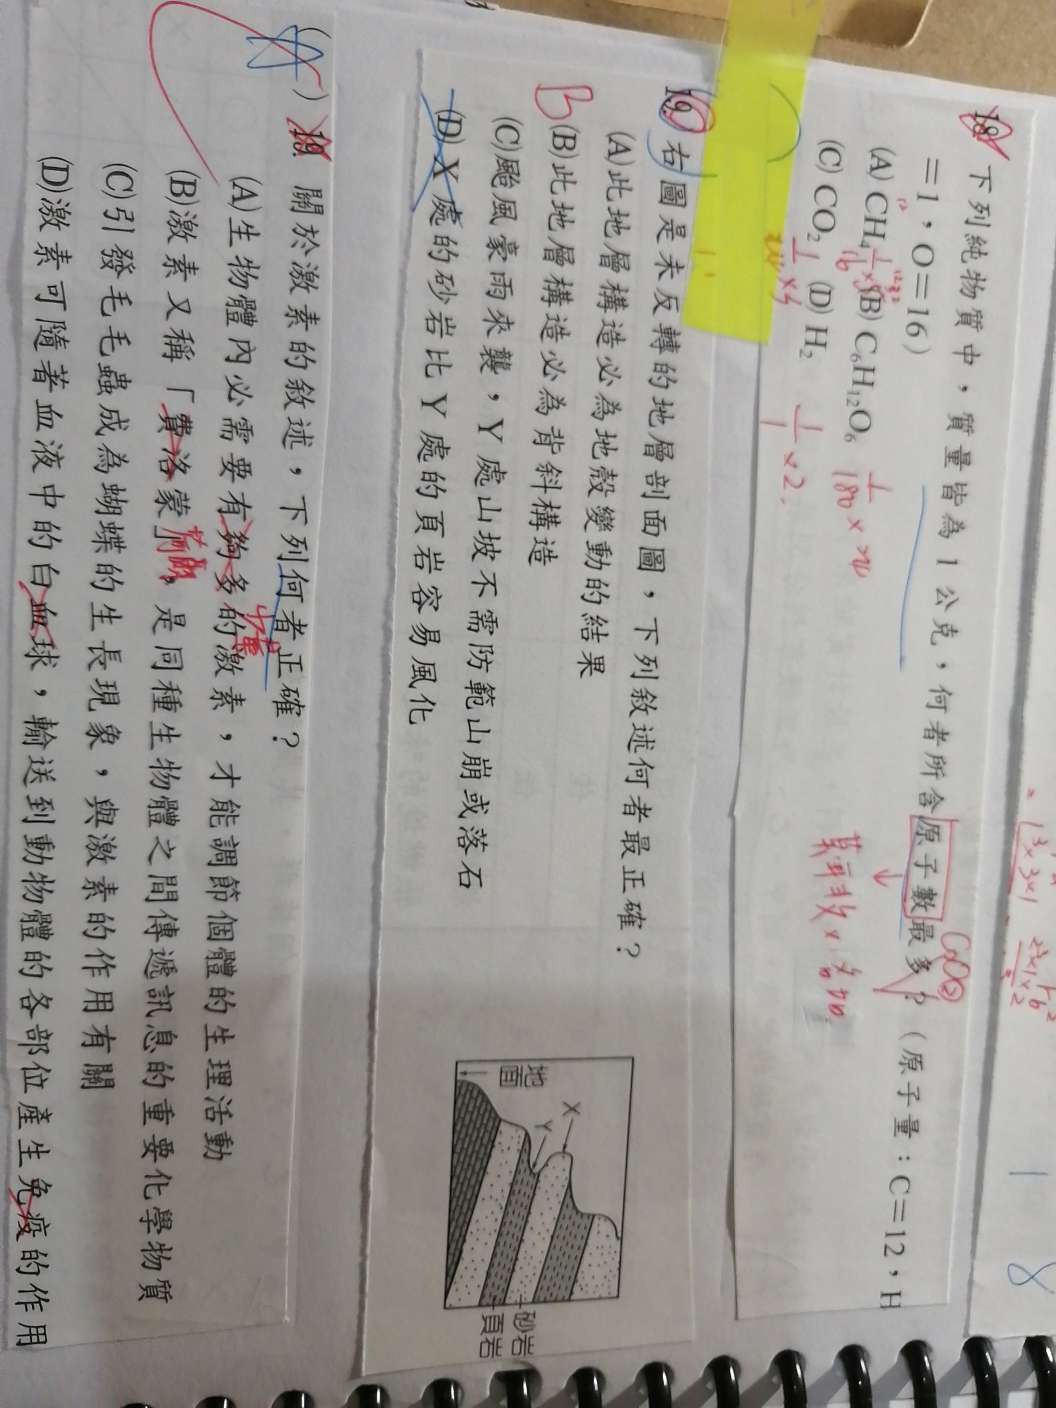 18. 下列純物質中，質量皆為 1 公克，何者所含原子數最多？（原子量：C＝12，H
＝1，O＝16）
(A) CH₄ (B) C₆H₁₂O₆
(C) CO₂ (D) H₂
12
1/16 × 5
1/180 × 24
1/44 × 3
1/1 × 2
CO₂
莫耳數 ×
19. 右圖是未反轉的地層剖面圖，下列敘述何者最正確？
(A)此地層構造必為地殼變動的結果
B
(B)此地層構造必為背斜構造
(C)颱風豪雨來襲，Y 處山坡不需防範山崩或落石
(D) X 處的砂岩比 Y 處的頁岩容易風化
地面
X
Y
砂岩
頁岩
( ) 19. 關於激素的敘述，下列何者正確？
(A)生物體內必需要有夠多的激素，才能調節個體的生理活動
少量
(B)激素又稱「費洛蒙」，是同種生物體之間傳遞訊息的重要化學物質
(C)引發毛毛蟲成為蝴蝶的生長現象，與激素的作用有關
(D)激素可隨著血液中的白血球，輸送到動物體的各部位產生免疫的作用
1
8